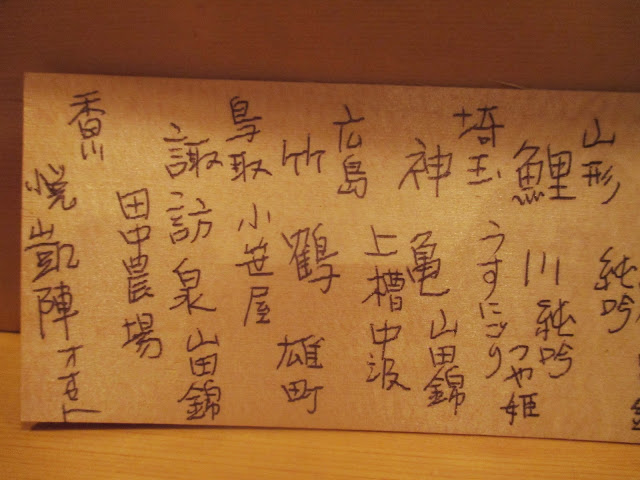 純吟
山形
鯉川 純吟
つや姫
埼玉
うすにごり
神亀 山田錦
上槽中汲
広島
竹鶴 雄町
小笹屋
鳥取
諏訪泉 山田錦
田中農場
香川
悦凱陣 オオセト